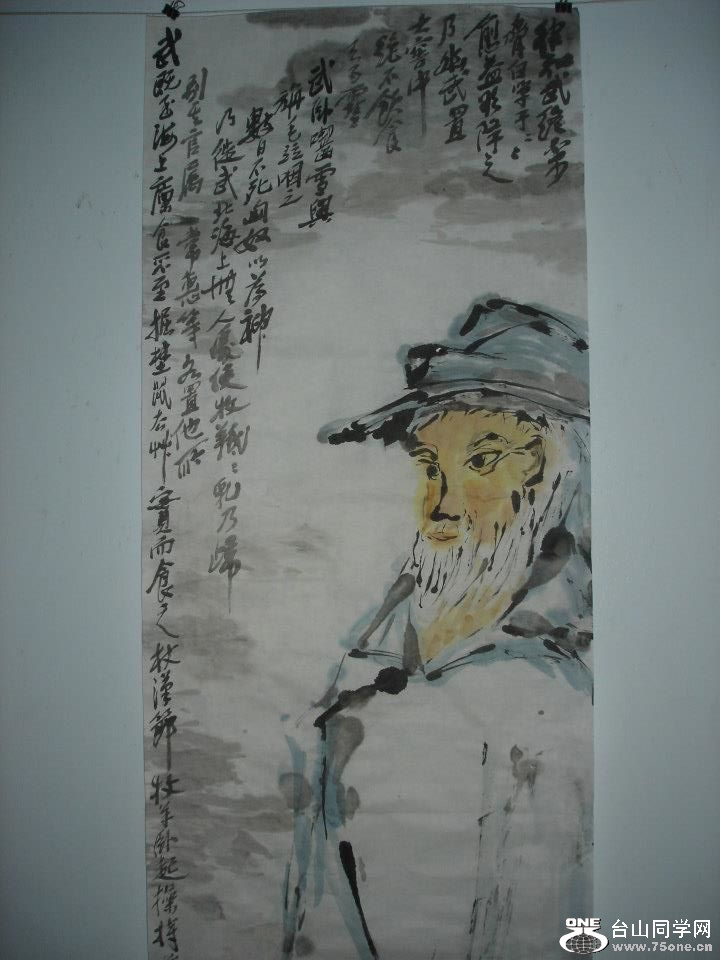 律知武終不
脅白單于〻〻
愈益欲降之
乃幽武置
大窖中
絕不飲食
天雨雪
武臥齧雪與
旃毛並咽之
數日不死匈奴以為神
乃徙武北海上無人處使牧羝〻乳乃歸
別其官屬常惠等各置他所
武既至海上廩食不至掘埜鼠去艸實而食之杖漢節牧羊臥起操持
ONE 台山同学网
www.75one.cn